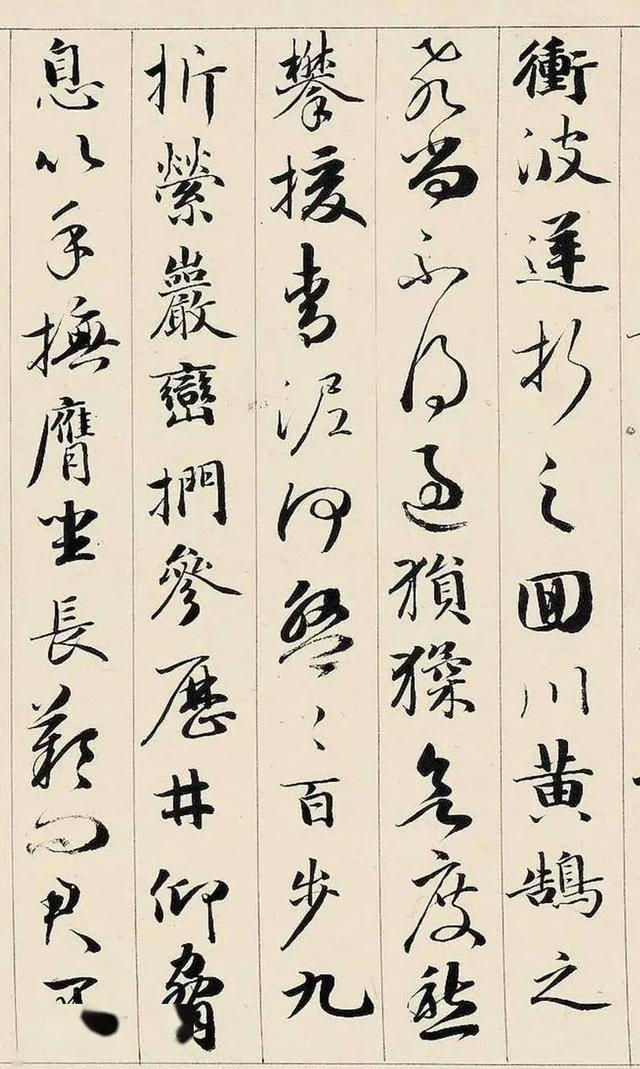 衝波逆折之囬川黄鵠之
飛尚不得過猿猱欲度愁
攀援青泥何盤〻百步九
折縈巖巒捫參歷井仰脅
息以手撫膺坐長歎問君